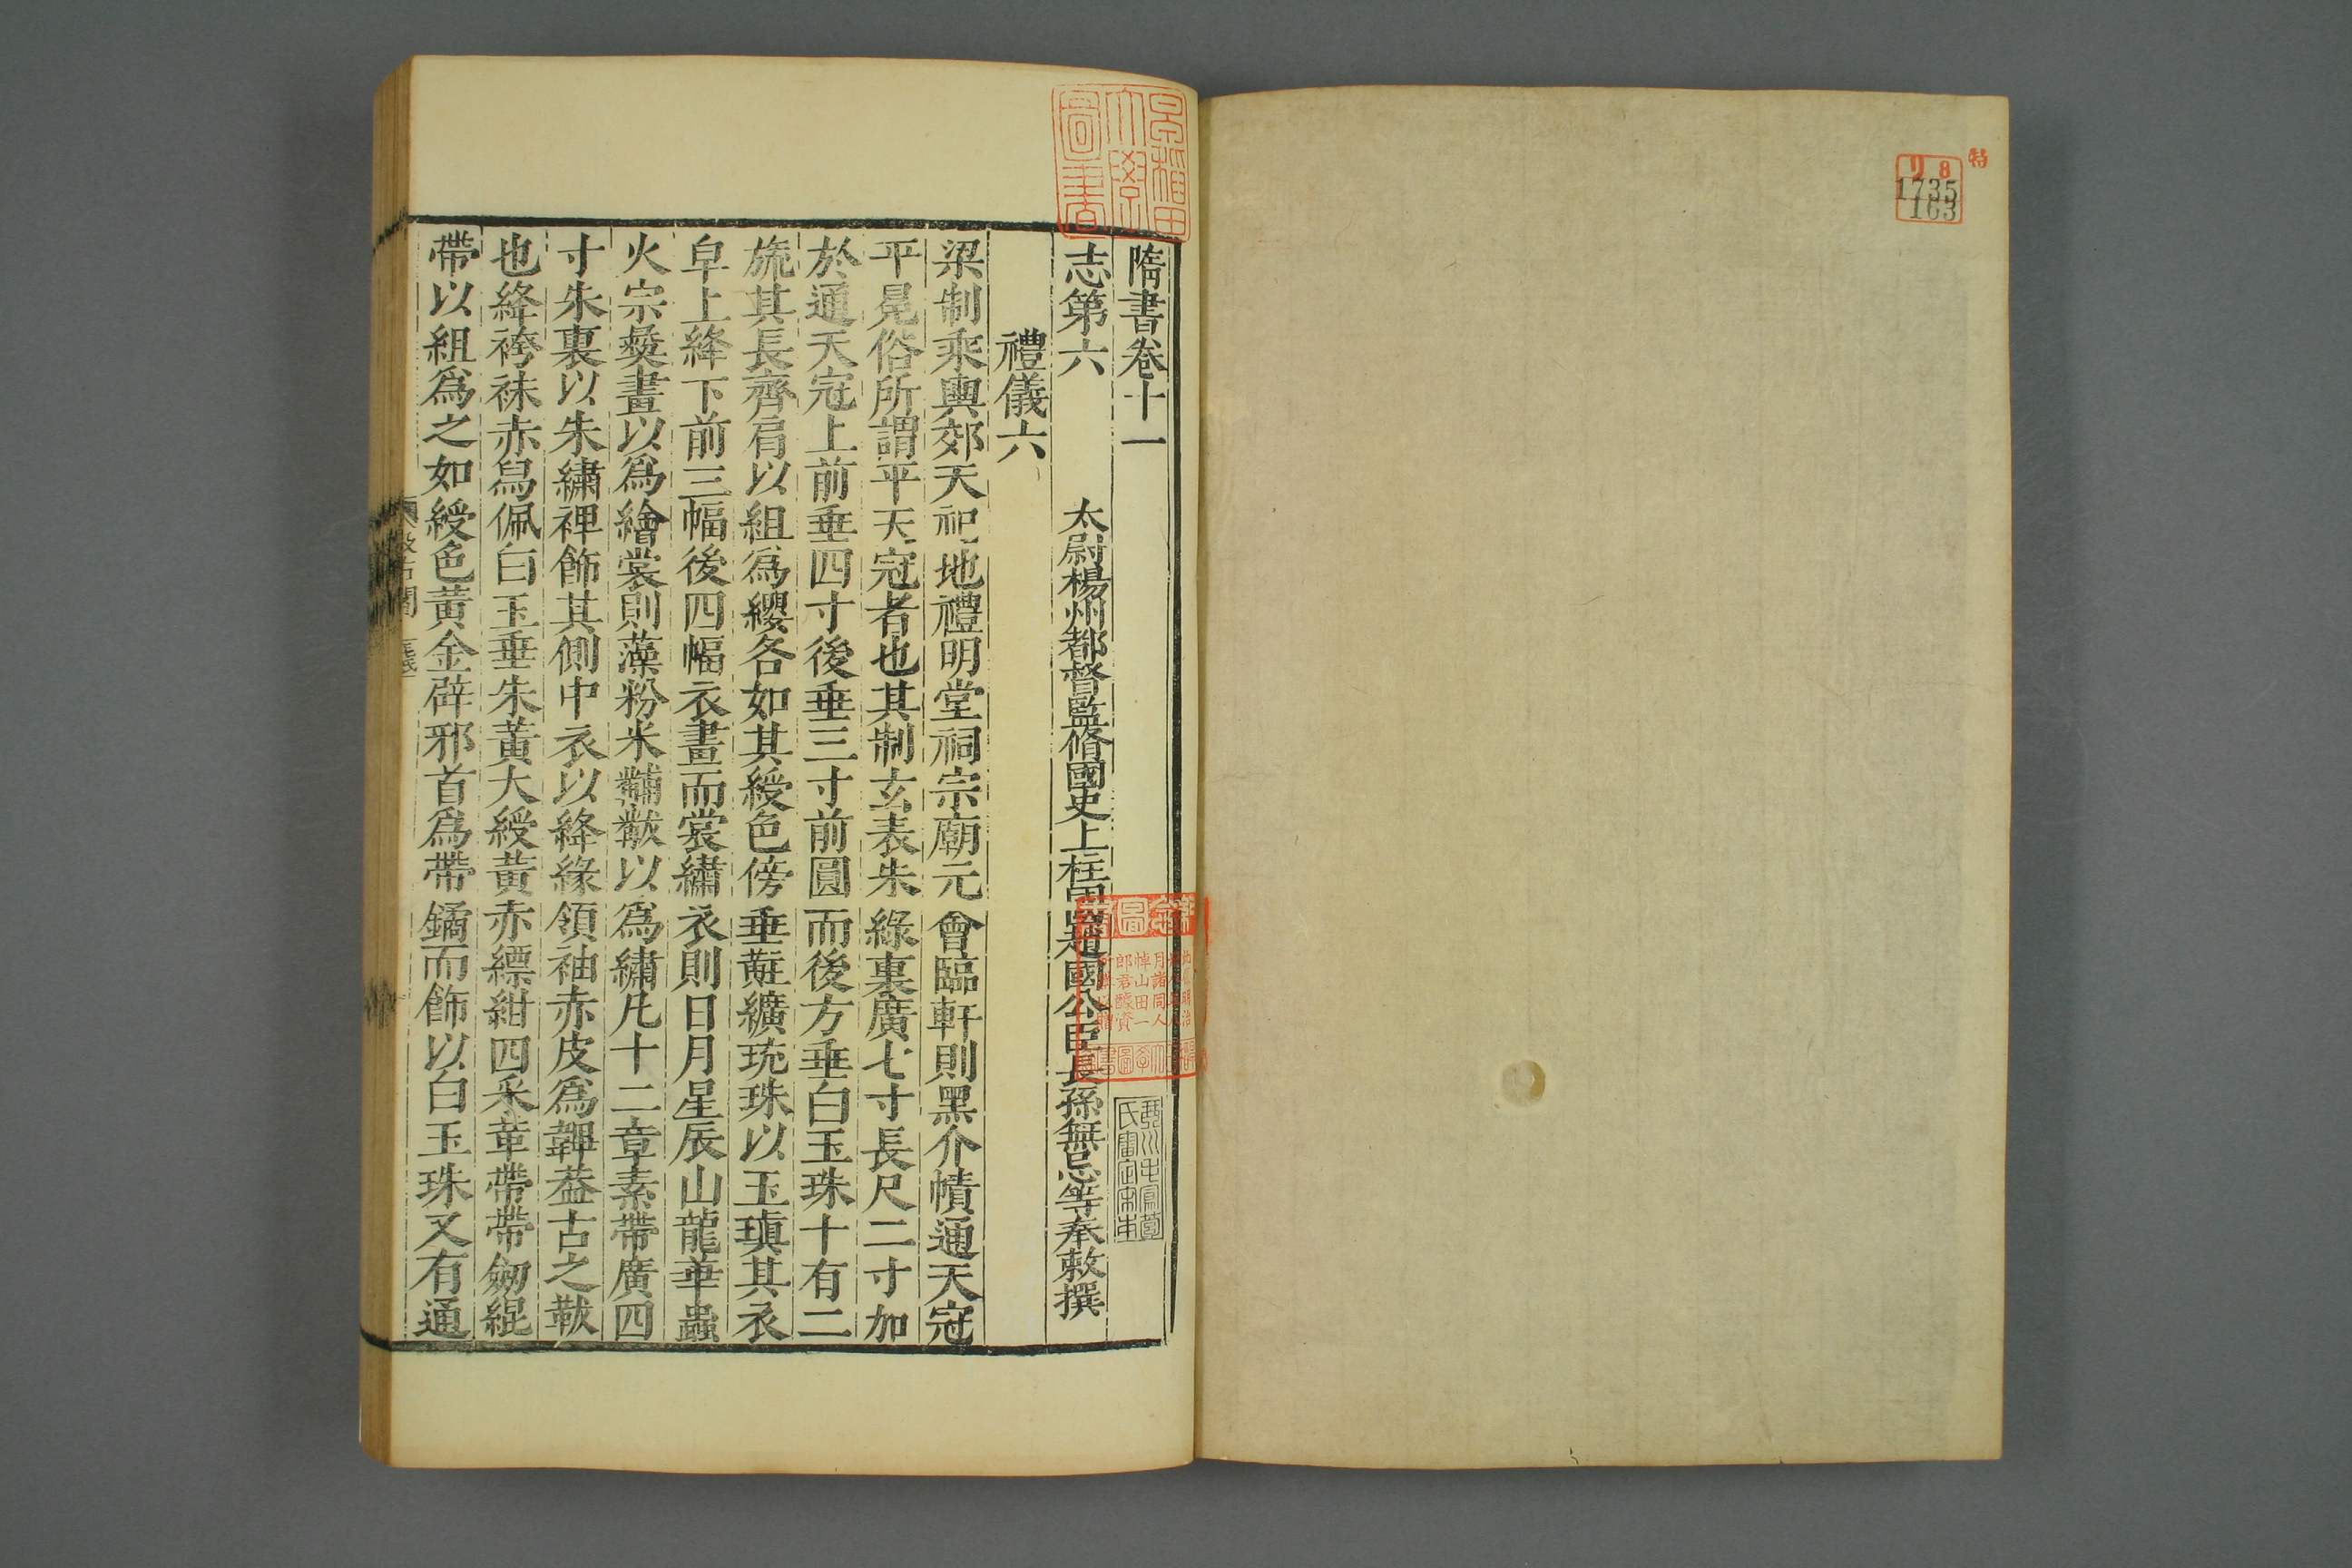 特
リ 8
1735
103
早稲田
大學
圖書
隋書卷十一
志第六
太尉楊州都督監脩國史上柱國趙國公臣長孫無忌等奉敕撰
禮儀六
梁制乘輿郊天祀地禮明堂祠宗廟元會臨軒則黑介幘通天冠
平冕俗所謂平天冠者也其制玄表朱綠裏廣七寸長尺二寸加
於通天冠上前垂四寸後垂三寸前圓而後方垂白玉珠十有二
旒其長齊肩以組爲纓各如其綬色傍垂黈纊琉珠以玉瑱其衣
皁上絳下前三幅後四幅衣畫而裳繡衣則日月星辰山龍華蟲
火宗彝畫以爲繪裳則藻粉米黼黻以爲繡凡十二章素帶廣四
寸朱裏以朱繡裨飾其側中衣以絳緣領袖赤皮爲韠葢古之韍
也絳袴袜赤舄佩白玉垂朱黃大綬黃赤縹紺四采革帶帶劒緄
帶以組爲之如綬色黃金辟邪首爲帶鐍而飾以白玉珠又有通